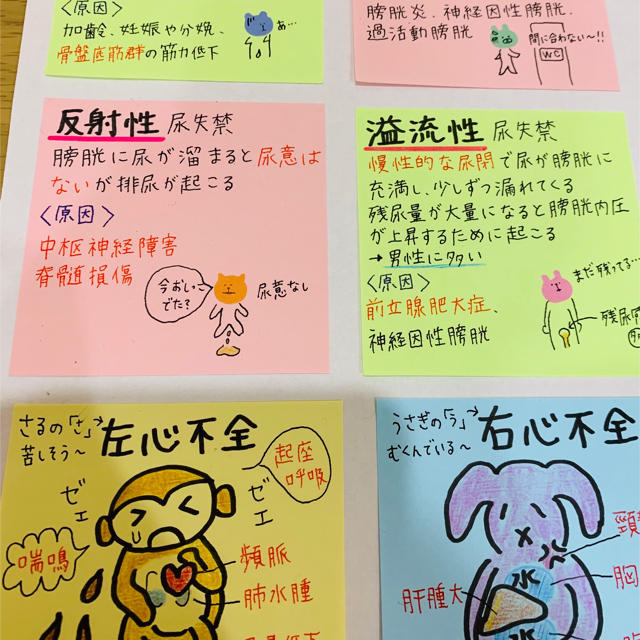 〈原因〉
加齢、妊娠や分娩、
骨盤底筋群の筋力低下
あ…
膀胱炎、神経因性膀胱、
過活動膀胱
間に合わない〜!!
WC
反射性 尿失禁
膀胱に尿が溜まると尿意は
ないが排尿が起こる
〈原因〉
中枢神経障害
脊髄損傷
今おしっこ
でた?
尿意なし
溢流性 尿失禁
慢性的な尿閉で尿が膀胱に
充満し、少しずつ漏れてくる
残尿量が大量になると膀胱内圧
が上昇するために起こる
→男性に多い
〈原因〉
前立腺肥大症、
神経因性膀胱
まだ残ってる…
残尿
さるの「さ」→
苦しそう〜
左心不全
起座
呼吸
ゼエ
ゼエ
喘鳴
頻脈
肺水腫
うさぎの「う」→
むくんでいる〜
右心不全
頸
水
胸
肝腫大